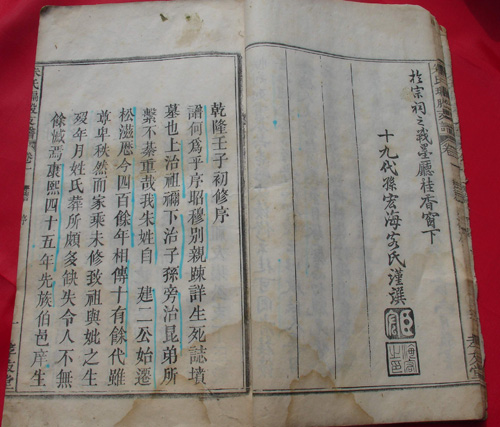 扵宗祠之戩墨廳桂香窗下
十九代孫宏海客氏謹撰
乾隆壬子初修序
譜何爲乎序昭穆别親踈詳生死誌墳
墓也上治祖禰下治子孫旁治昆弟所
繫不綦重哉我朱姓自 建二公始遷
松滋厯今四百餘年相傳十有餘代雖
尊卑秩然而家乘未修致祖與妣之生
殁年月姓氏葬所頗多缺失令人不無
餘憾焉康熙四十五年先族伯邑庠生
朱氏 支譜 卷一 序 一